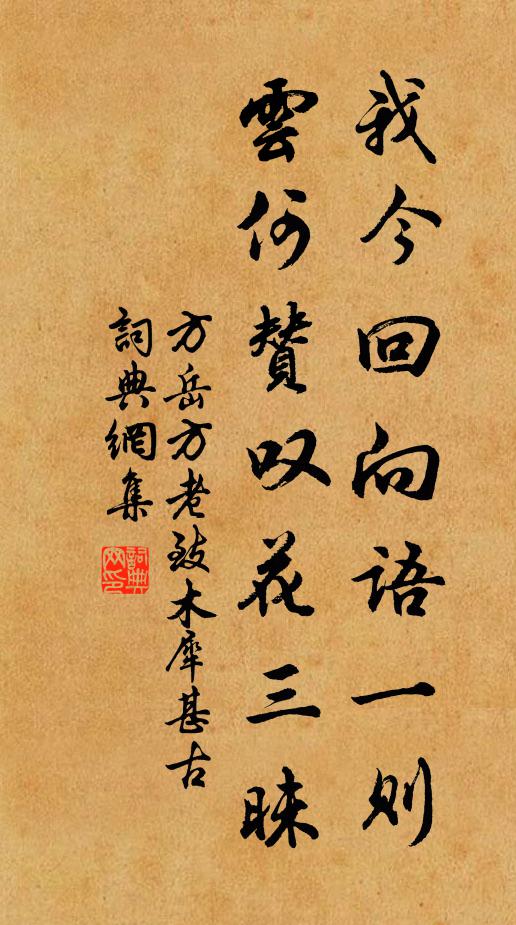 我今回向語一則
雲何贊叹花三昧
方岳方老致木犀甚古
詞典網集
詞典网印